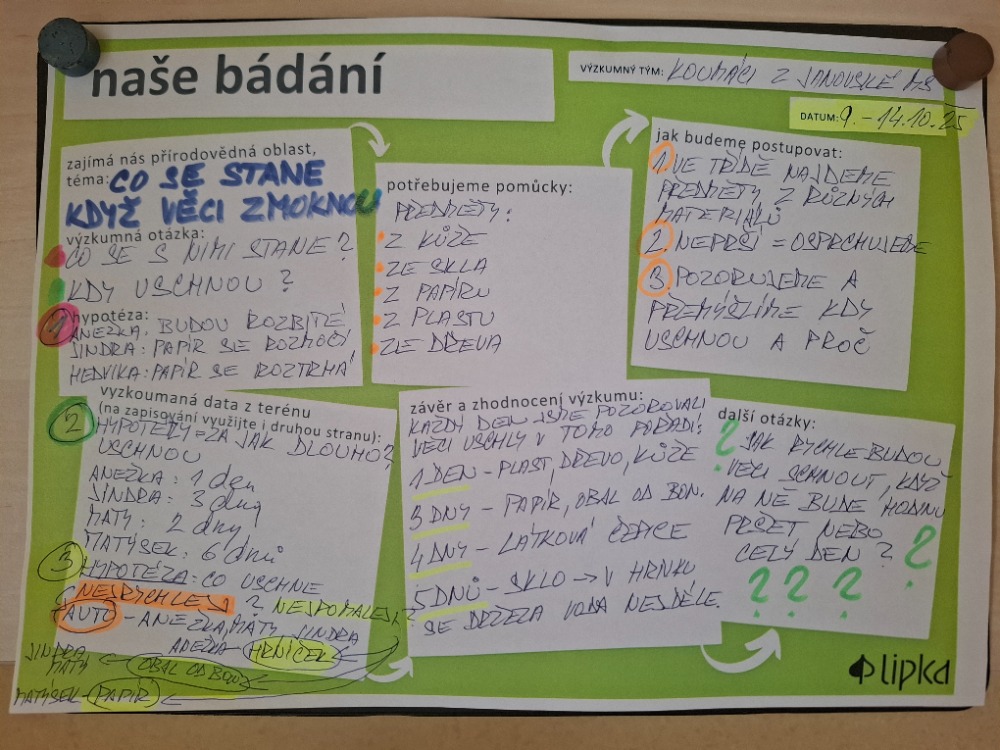 naše bádání
VÝZKUMNÝ TÝM: KOUMÁCI Z JANOVSKÉ MŠ
DATUM: 9.-14.10.25
zajímá nás přírodovědná oblast,
téma: CO SE STANE
KDYŽ VĚCI ZMOKNOU
výzkumná otázka:
CO SE S NIMI STANE?
KDY USCHNOU?
1 hypotéza:
ANEŽKA: BUDOU ROZBITÉ
JINDRA: PAPÍR SE ROZMOČÍ
HEDVIKA: PAPÍR SE ROZTRHÁ
potřebujeme pomůcky:
PŘEDMĚTY:
Z KŮŽE
ZE SKLA
Z PAPÍRU
Z PLASTU
ZE DŘEVA
jak budeme postupovat:
1. VE TŘÍDĚ NAJDEME
PŘEDMĚTY Z RŮZNÝCH
MATERIÁLŮ
2. NEPRŠÍ = OSPRCHUJEME
3 POZORUJEME A
PŘEMÝŠLÍME KDY
USCHNOU A PROČ
vyzkoumaná data z terénu
(na zapisování využijte i druhou stranu):
2 HYPOTÉZY = ZA JAK DLOUHO?
USCHNOU
ANEŽKA: 1 den
JINDRA: 3 dny
MATY: 2 dny
MATÝSEK: 6 dnů
3 HYPOTÉZA: CO USCHNE
NEJRYCHLEJI? NEJPOMALEJI?
AUTO - ANEŽKA, MATY, JINDRA
ANEŽKA HRNÍČEK
JINDRA
MATY OBAL OD BONB.
MATÝSEK PAPÍR
závěr a zhodnocení výzkumu:
KAŽDÝ DEN JSME POZOROVALI
VĚCI USCHLY V TOMTO POŘADÍ:
1 DEN - PLAST, DŘEVO, KŮŽE
3 DNY - PAPÍR, OBAL OD BON.
4 DNY - LÁTKOVÁ ČEPICE
5 DNŮ - SKLO → V HRNKU
SE DRŽELA VODA NEJDÉLE.
další otázky:
? JAK RYCHLE BUDOU
VĚCI SCHNOUT, KDYŽ
NA NĚ BUDE HODINU
PRŠET NEBO
CELÝ DEN? ?
? ? ?
lipka